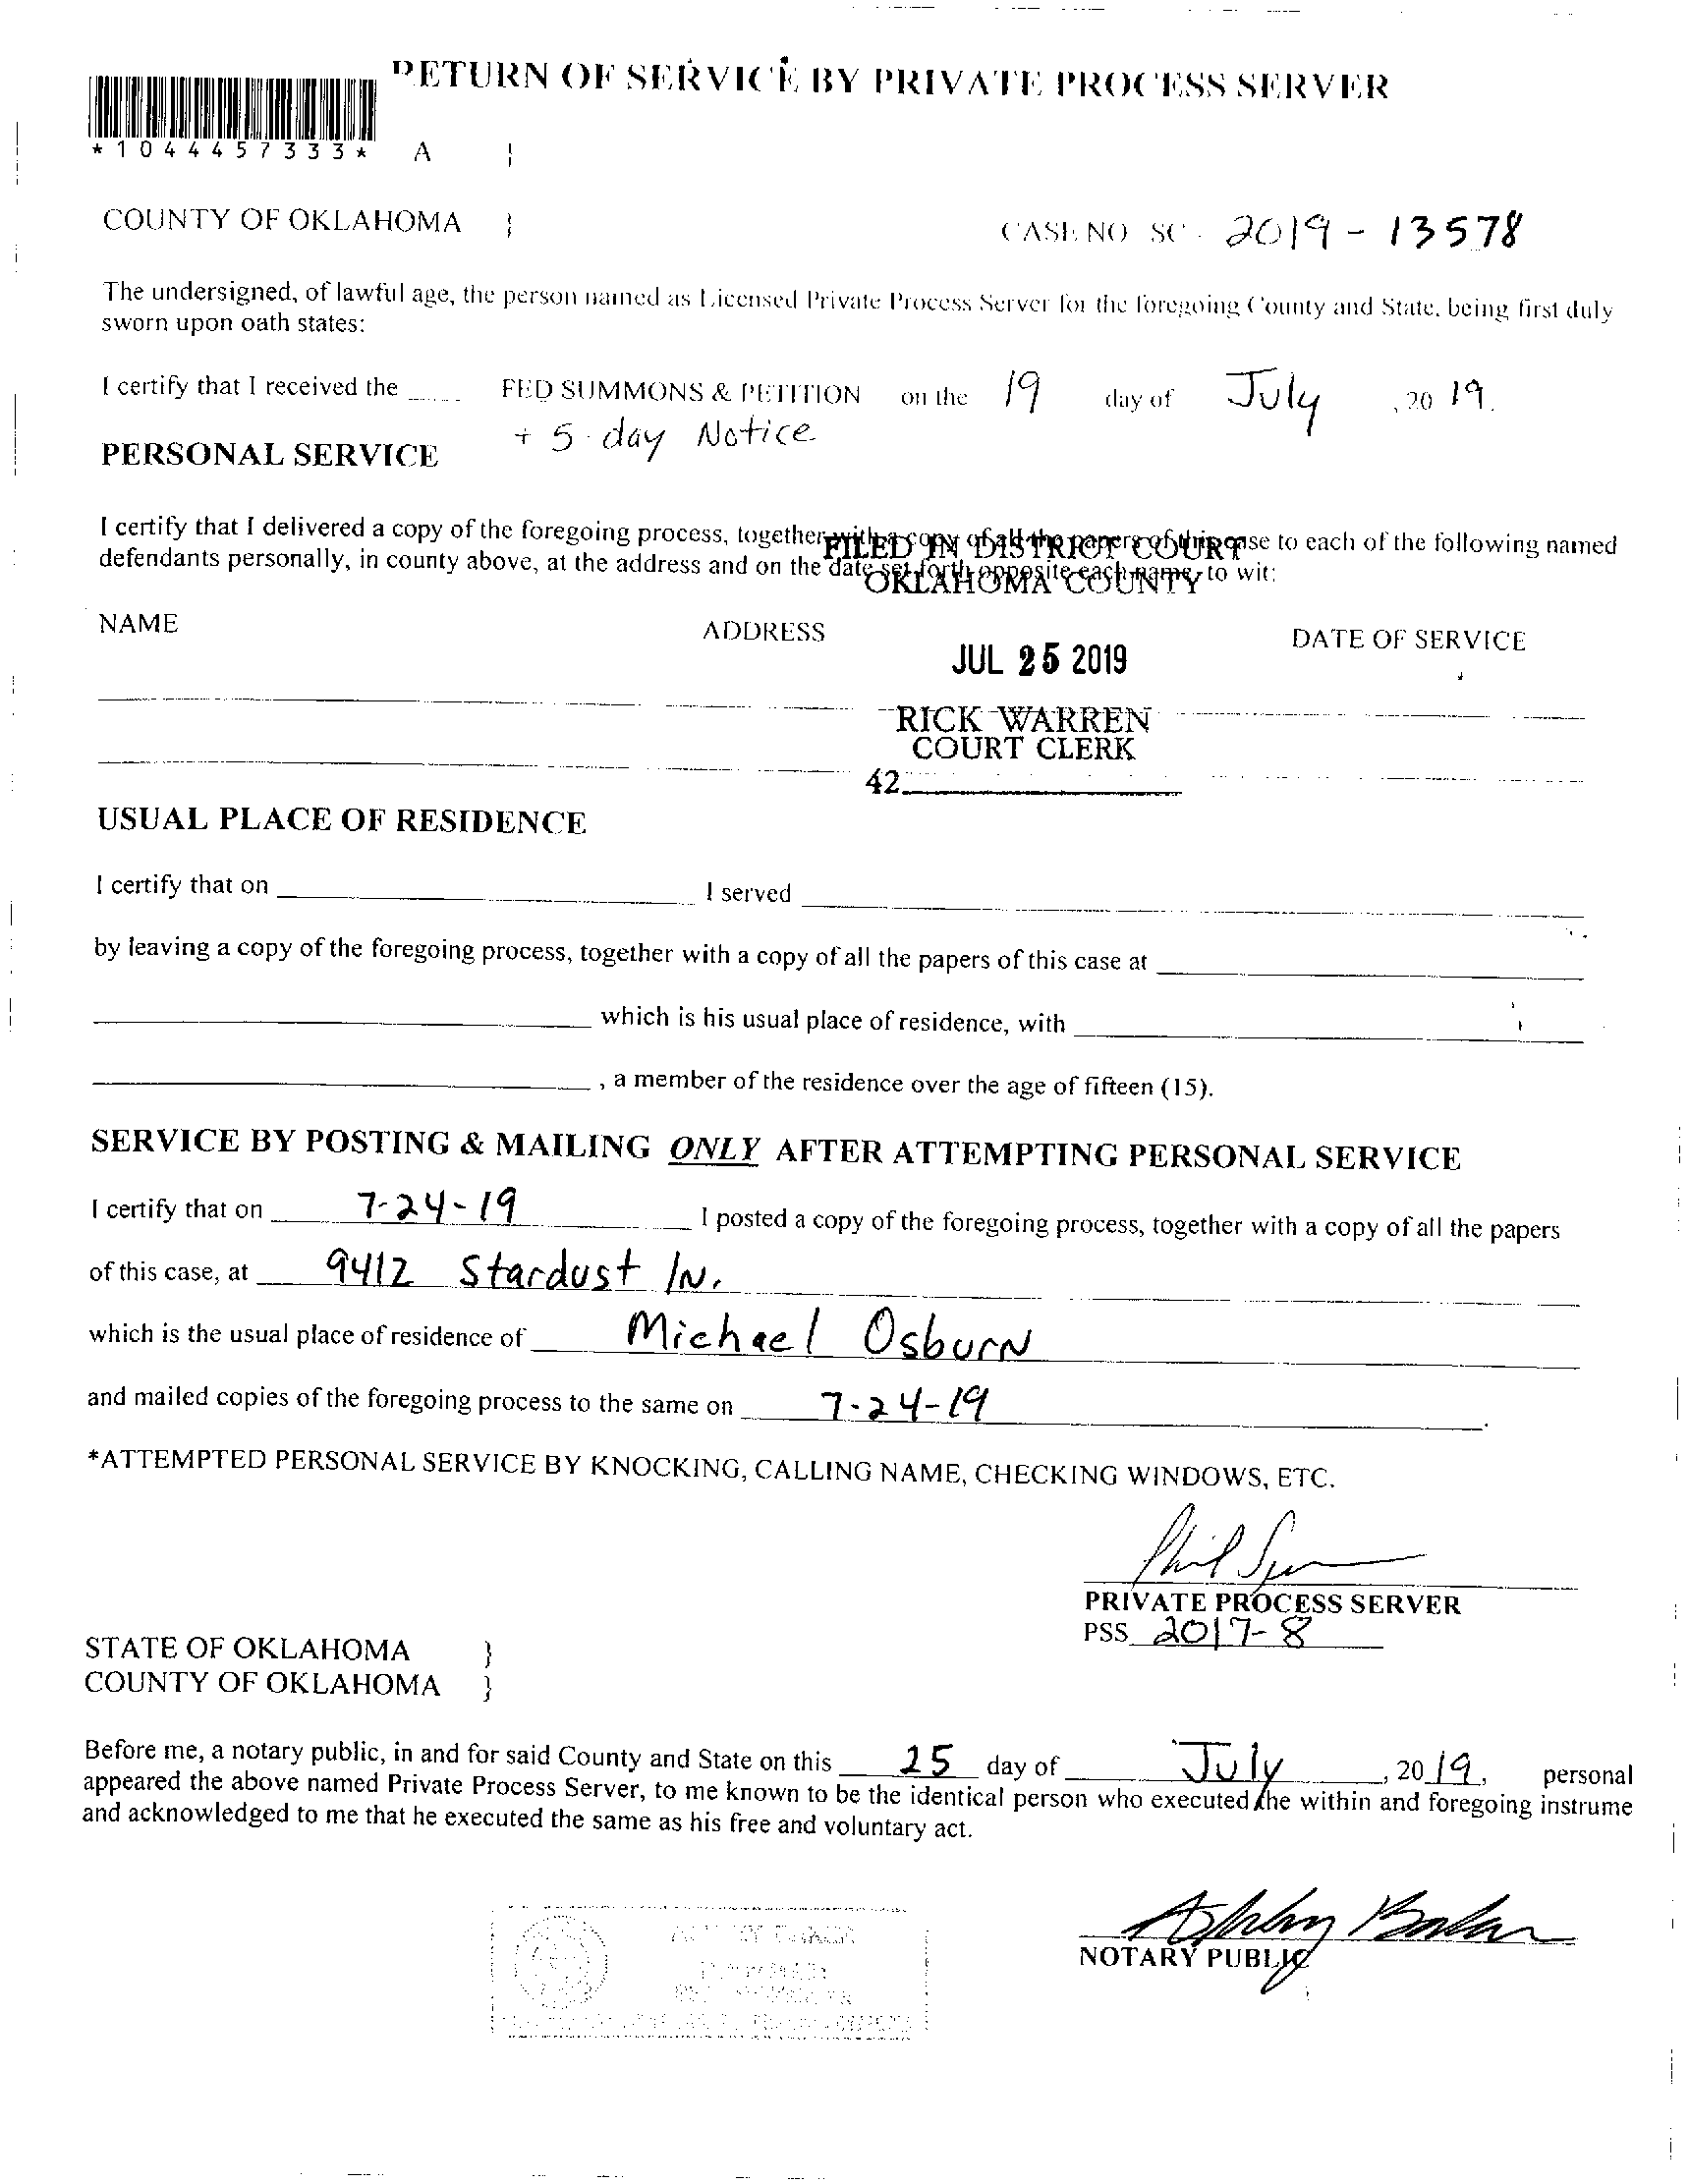 RETURN OF SERVICE BY PRIVATE PROCESS SERVER
*1044457333* A }
COUNTY OF OKLAHOMA }
CASE NO SC - 2019 - 13578
The undersigned, of lawful age, the person named as Licensed Private Process Server for the foregoing County and State, being first duly
sworn upon oath states:
I certify that I received the FED SUMMONS & PETITION on the 19 day of July , 20 19.
+ 5-day Notice
PERSONAL SERVICE
I certify that I delivered a copy of the foregoing process, together with a copy of all the papers of this case to each of the following named
defendants personally, in county above, at the address and on the date set forth opposite each name, to wit:
FILED IN DISTRICT COURT
OKLAHOMA COUNTY
NAME ADDRESS DATE OF SERVICE
JUL 25 2019
RICK WARREN
COURT CLERK
42
USUAL PLACE OF RESIDENCE
I certify that on I served
by leaving a copy of the foregoing process, together with a copy of all the papers of this case at
which is his usual place of residence, with
, a member of the residence over the age of fifteen (15).
SERVICE BY POSTING & MAILING ONLY AFTER ATTEMPTING PERSONAL SERVICE
I certify that on 7-24-19 I posted a copy of the foregoing process, together with a copy of all the papers
of this case, at 9412 Stardust ln.
which is the usual place of residence of Michael Osburn
and mailed copies of the foregoing process to the same on 7-24-19.
*ATTEMPTED PERSONAL SERVICE BY KNOCKING, CALLING NAME, CHECKING WINDOWS, ETC.
PRIVATE PROCESS SERVER
PSS 2017-8
STATE OF OKLAHOMA }
COUNTY OF OKLAHOMA }
Before me, a notary public, in and for said County and State on this 25 day of July , 2019, personal
appeared the above named Private Process Server, to me known to be the identical person who executed the within and foregoing instrume
and acknowledged to me that he executed the same as his free and voluntary act.
NOTARY PUBLIC